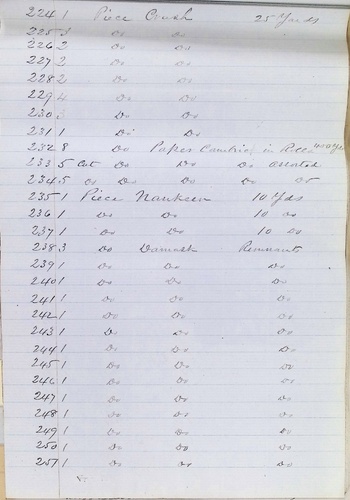 224 1 Piece Crash 25 Yards
225 3 Do Do
226 2 Do Do
227 2 Do Do
228 2 Do Do
229 2 Do Do
230 3 Do Do
231 1 Do Do
232 8 Do Paper Cambric in Piece
233 5 Cut Do Do Do assorted
234 5 Do Do Do Do Do
235 1 Piece Nankeen 10 Yds
236 1 Do Do 10 Do
237 1 Do Do 10 Do
238 3 Do Damask Remnants
239 1 Do Do Do
240 1 Do Do Do
241 1 Do Do Do
242 1 Do Do Do
243 1 Do Do Do
244 1 Do Do Do
245 1 Do Do Do
246 1 Do Do Do
247 1 Do Do Do
248 1 Do Do Do
249 1 Do Do Do
250 1 Do Do Do
251 1 Do Do Do